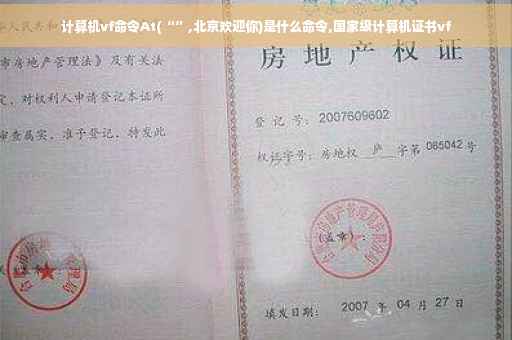 计算机vf命令At(“”,北京欢迎你)是什么命令,国家级计算机证书vf
华人民共和
市房地产管理法》及有关法
定,对权利人申请登记本证所
审查属实,准予登记,特发此
房地产权证
登记号:2007609602
权证字号:房地权 庐 字第 085042 号
(盖章):
填发日期: 2007 年 04 月 27 日